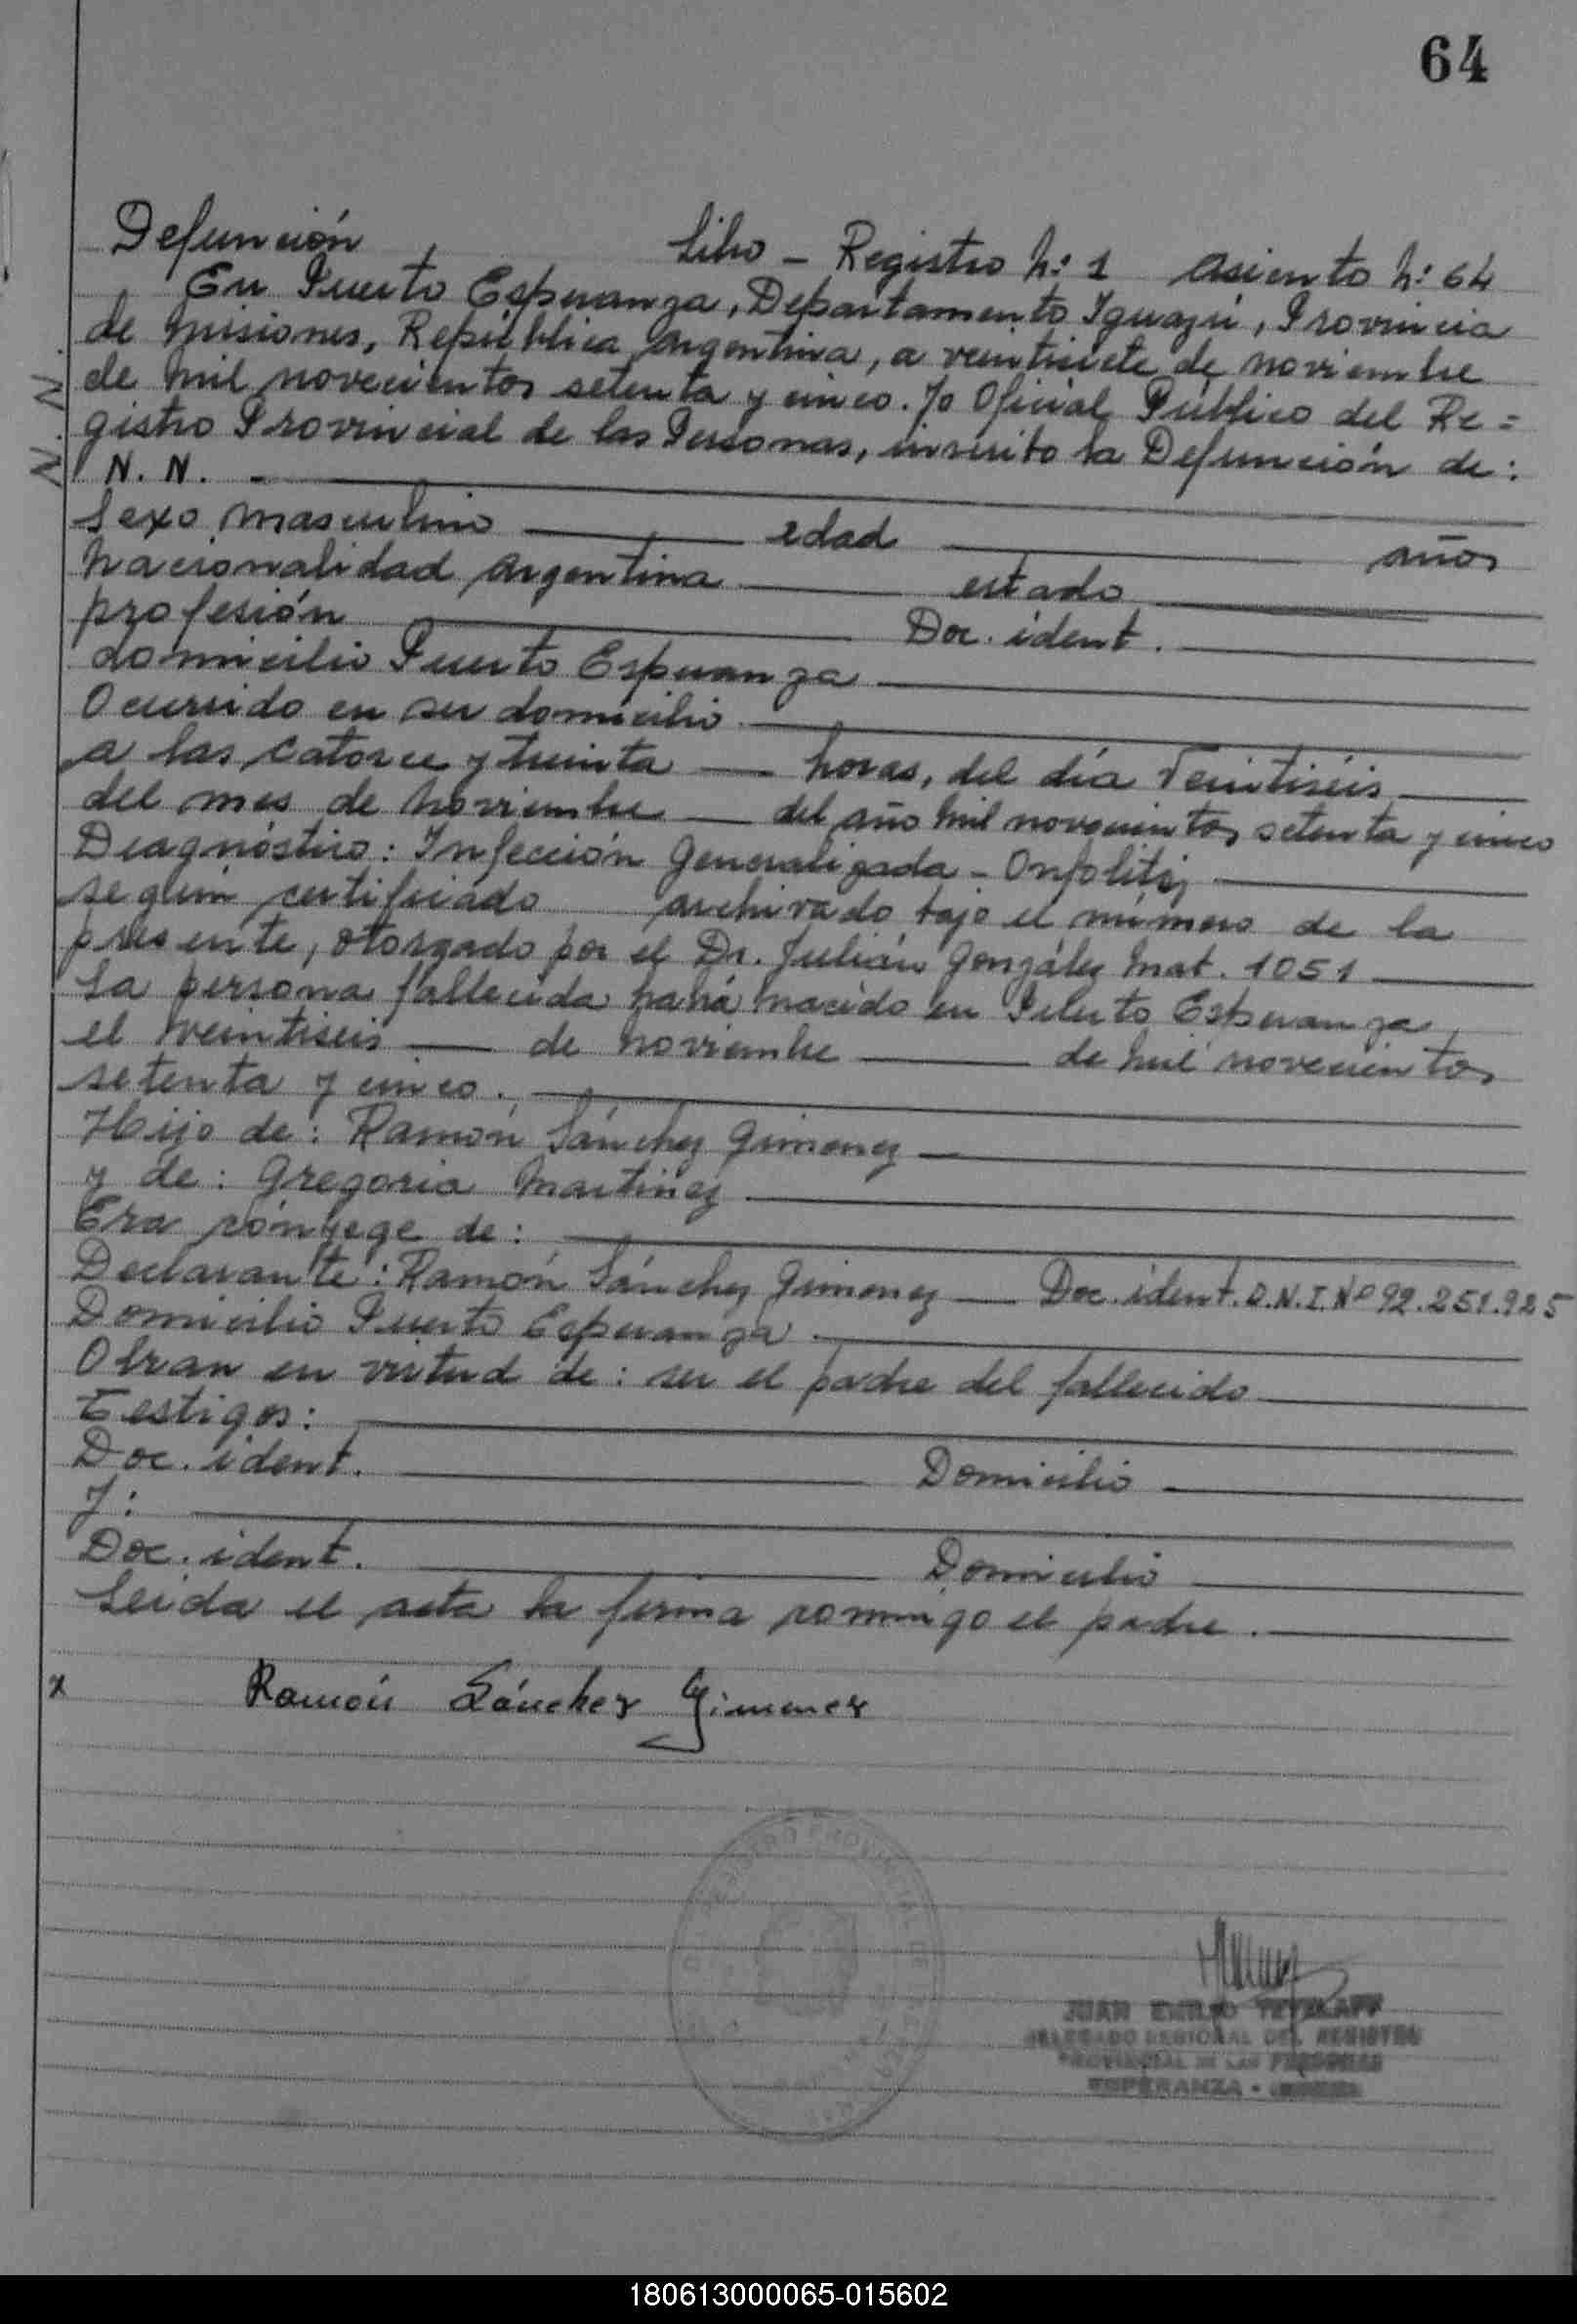 64
Defunción Libro - Registro Nº 1 Asiento Nº 64
En Puerto Esperanza, Departamento Iguazú, Provincia
de Misiones, República Argentina, a veintisiete de noviembre
de mil novecientos setenta y cinco. Yo Oficial Público del Re=
gistro Provincial de las Personas, inscribo la Defunción de:
N. N.
N. N. -
Sexo masculino edad años
Nacionalidad Argentina estado
profesión Doc. ident.
domicilio Puerto Esperanza
Ocurrido en su domicilio
a las catorce y treinta horas, del día Veintiséis
del mes de Noviembre del año mil novecientos setenta y cinco
Diagnóstico: Infección Generalizada - Onfolitis
según certificado archivado bajo el número de la
presente, otorgado por el Dr. Julián González Mat. 1051
La persona fallecida había nacido en Puerto Esperanza
el veintiseis de Noviembre de mil novecientos
setenta y cinco.
Hijo de: Ramón Sánchez Gimenez
y de: Gregoria Martinez
Era cónyege de:
Declarante: Ramón Sánchez Gimenez Doc. ident. D.N.I. Nº 92.251.925
Domicilio Puerto Esperanza
Obran en virtud de: ser el padre del fallecido
Testigos:
Doc. ident. Domicilio
Y:
Doc. ident. Domicilio
Leida el acta la firma conmigo el padre.
x Ramón Sánchez Gimenez
JUAN EMILIO
DELEGADO REGIONAL DEL REGISTRO
PROVINCIAL DE LAS PERSONAS
ESPERANZA -
180613000065-015602